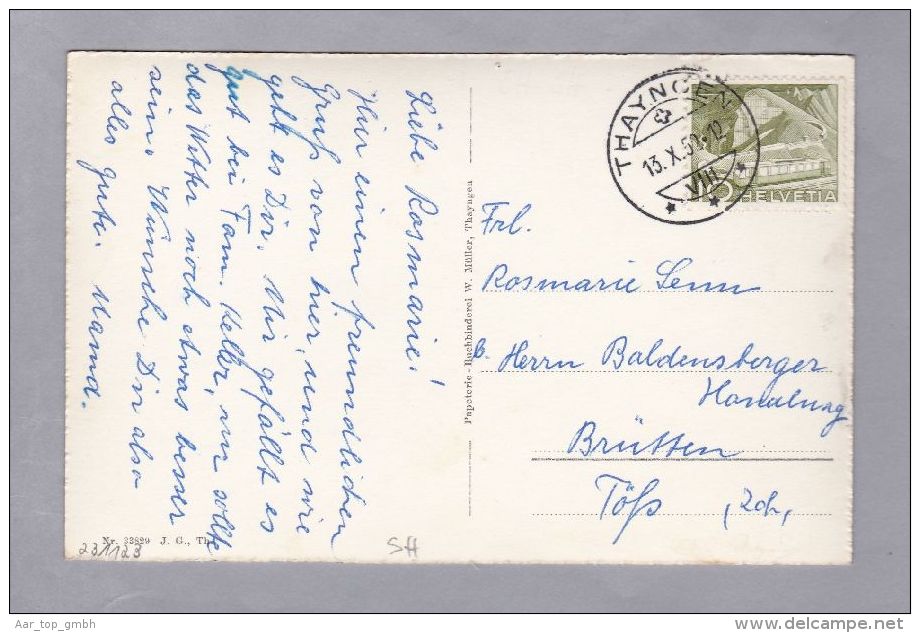 Liebe Rosmarie!
Hier einen freundlichen
Gruss von hier, und wie
geht es Dir. Mir gefällt es
gut bei Fam. Keller, nur sollte
das Wetter noch etwas besser
sein. Wünsche Dir also
alles gute.
Papeterie-Buchbinderei W. Müller, Thayngen
THAYNGEN
13. X. 52-12
VIII
HELVETIA
Frl.
Rosmarie Senn
b. Herrn Baldensberger
Handlung
Brütten
Töss (Zch.
Nr. 33829 J. G., Th.
231123
SH
Aar_top_gmbh
delcampe.net